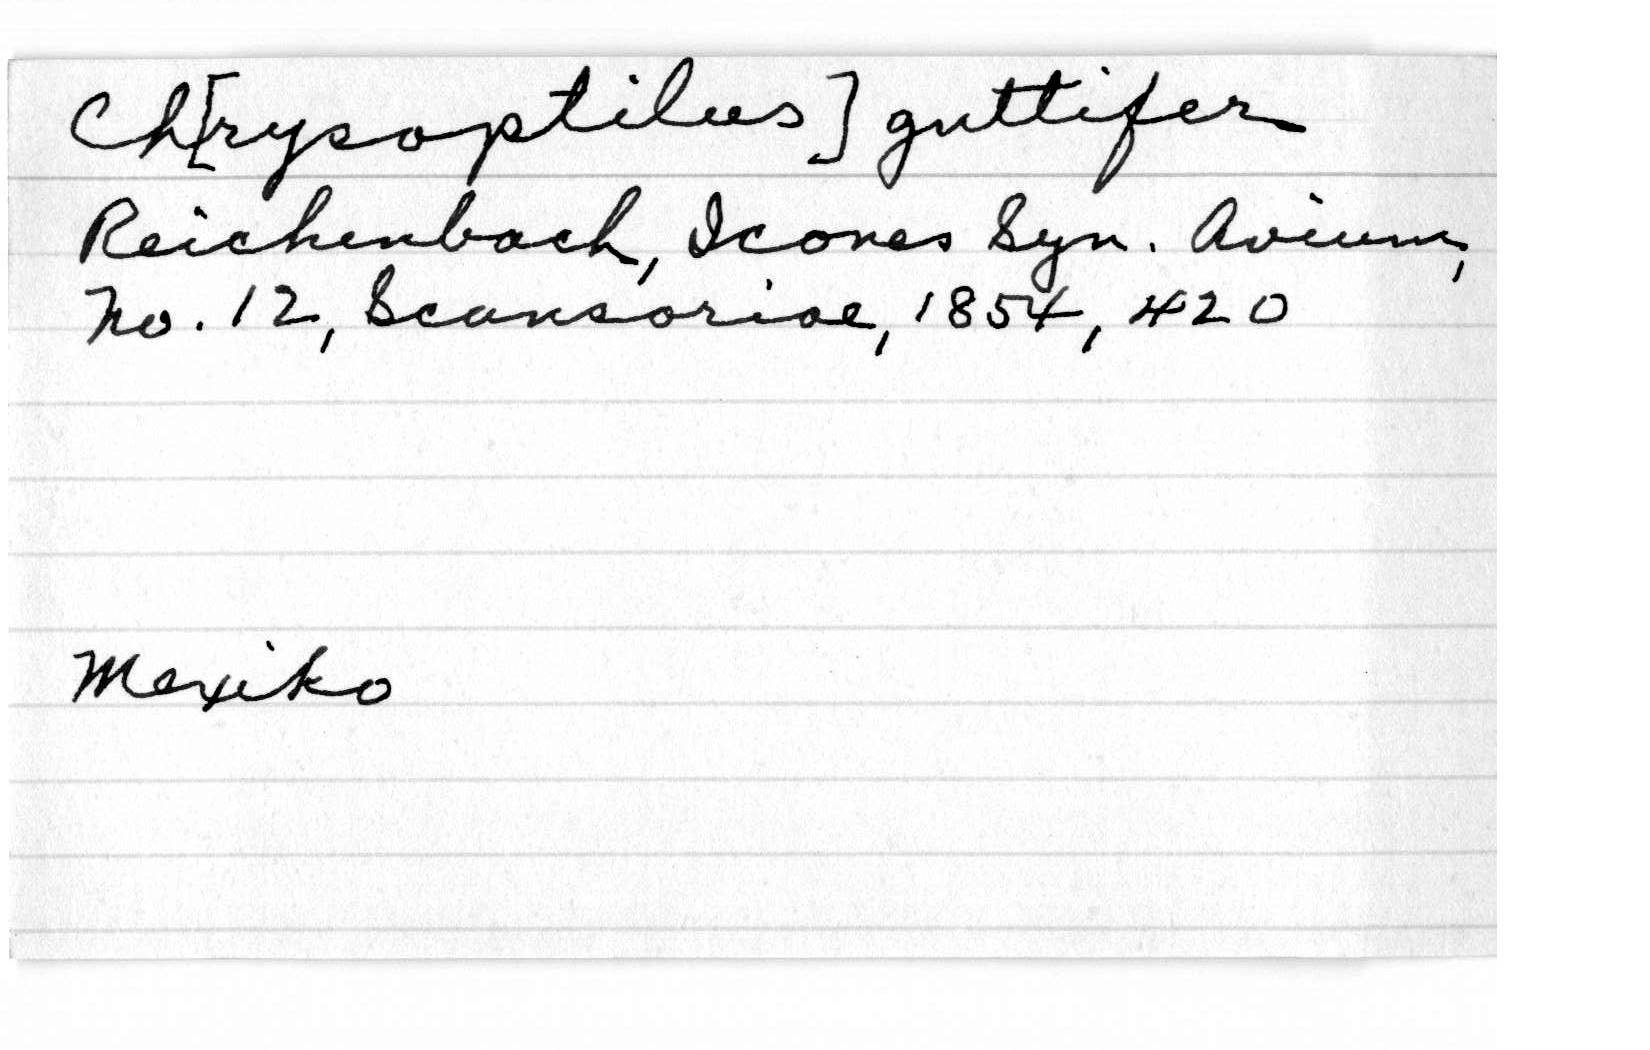 Ch[rysoptilus] guttifer
Reichenbach, Icones Syn. Avium,
No. 12, Scansoriae, 1854, 420
Mexiko